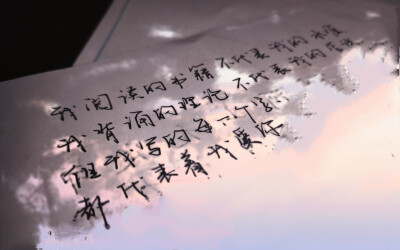 我阅读的书籍 不代表我的水准
我背诵的理论 不代表我的
但我写的每一个字
都代表着我爱你